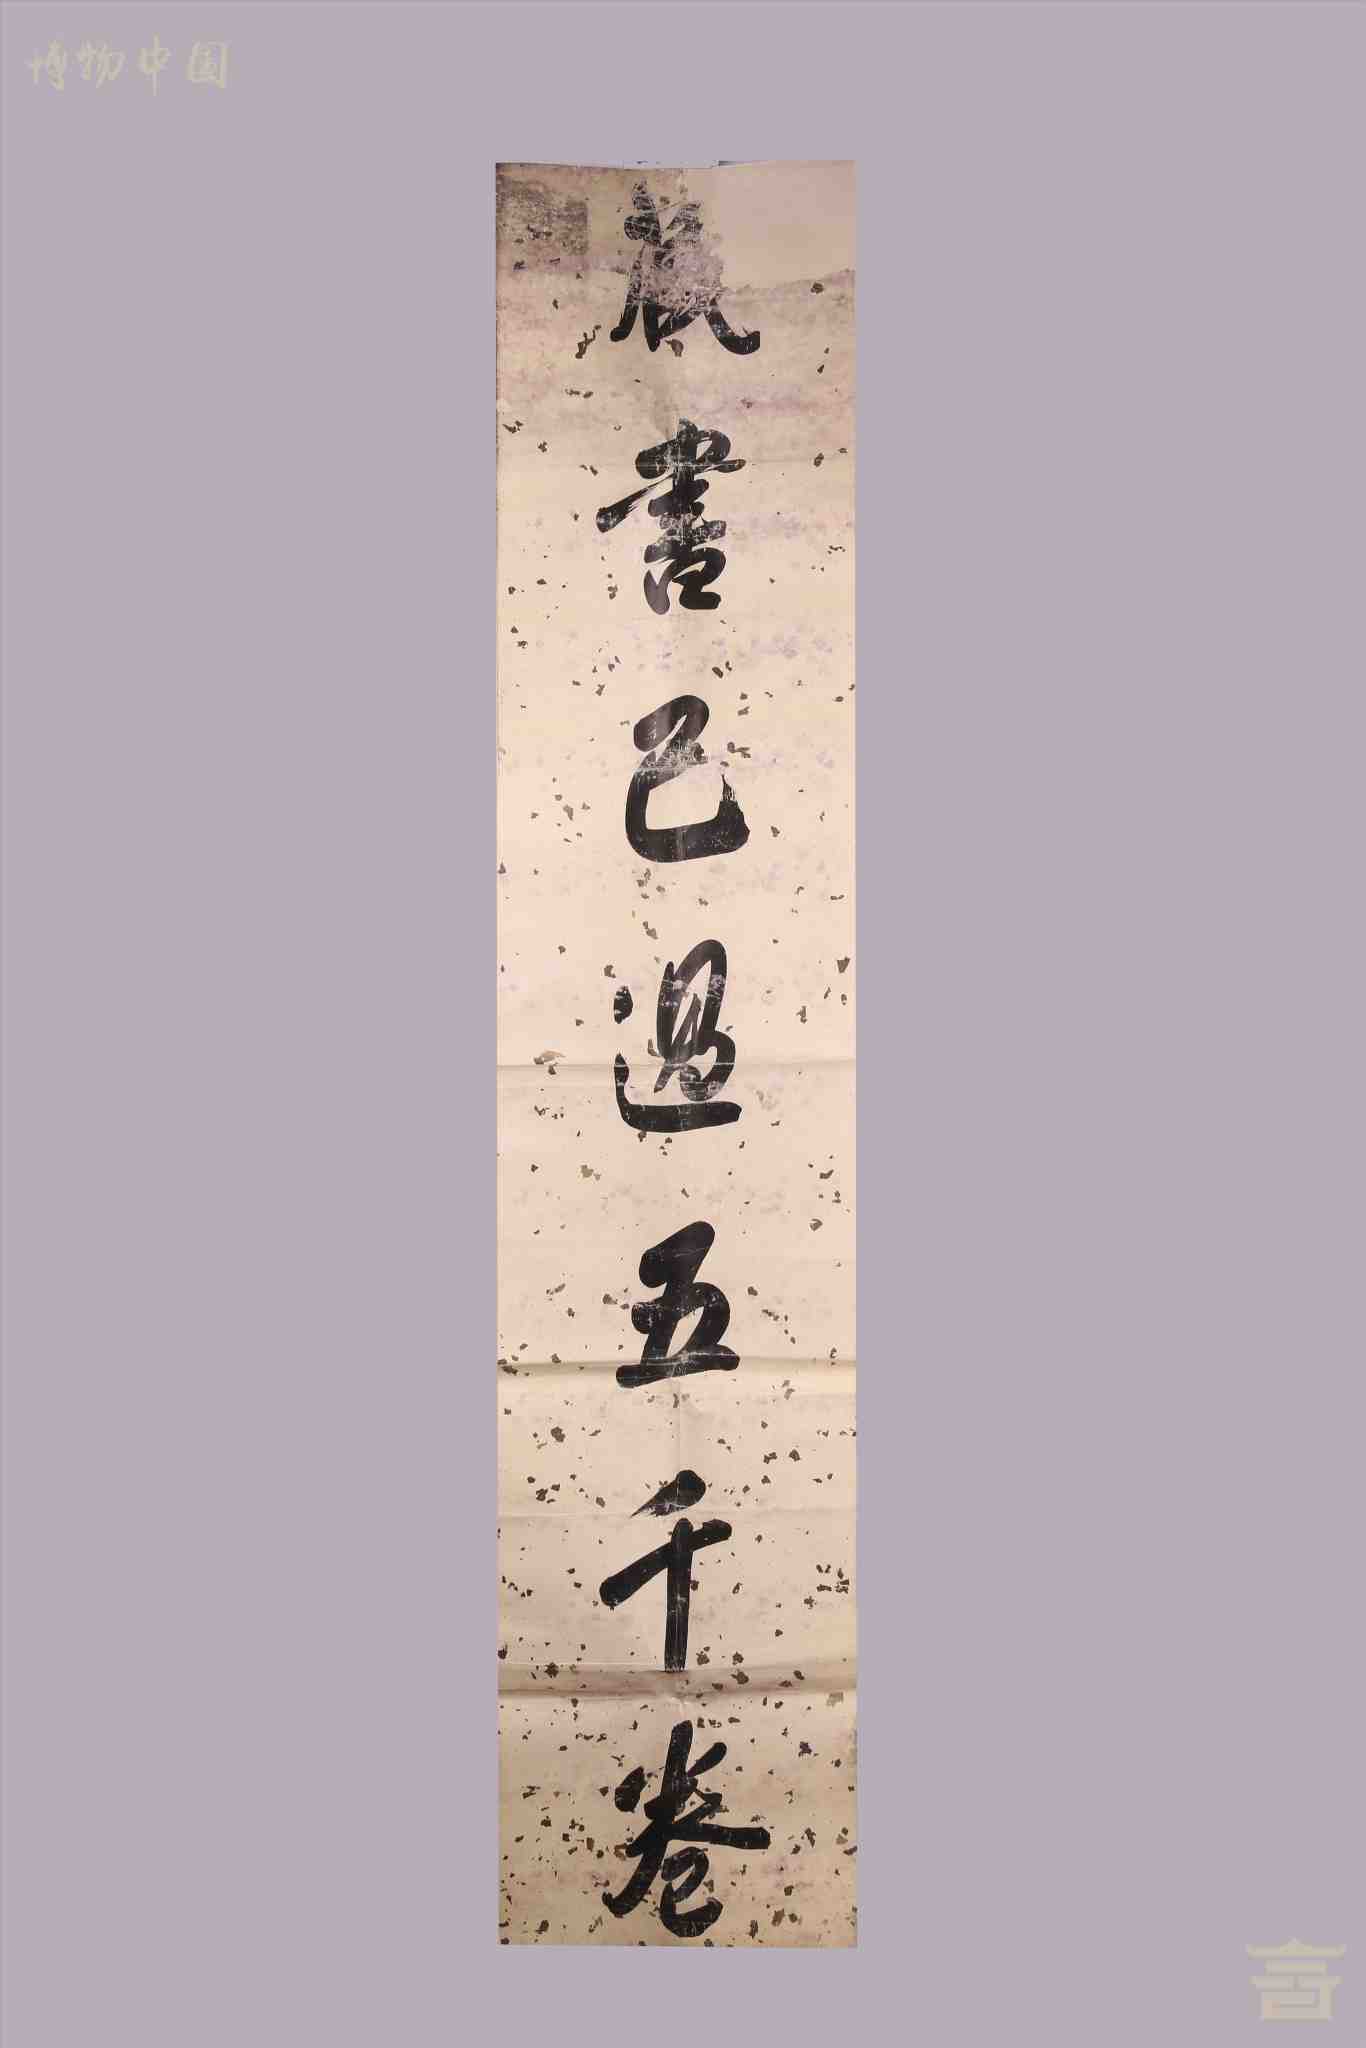 博物中国
藏書已過五千卷